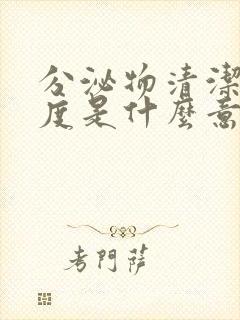 分泌物清潔
度是什麼意
考門薩